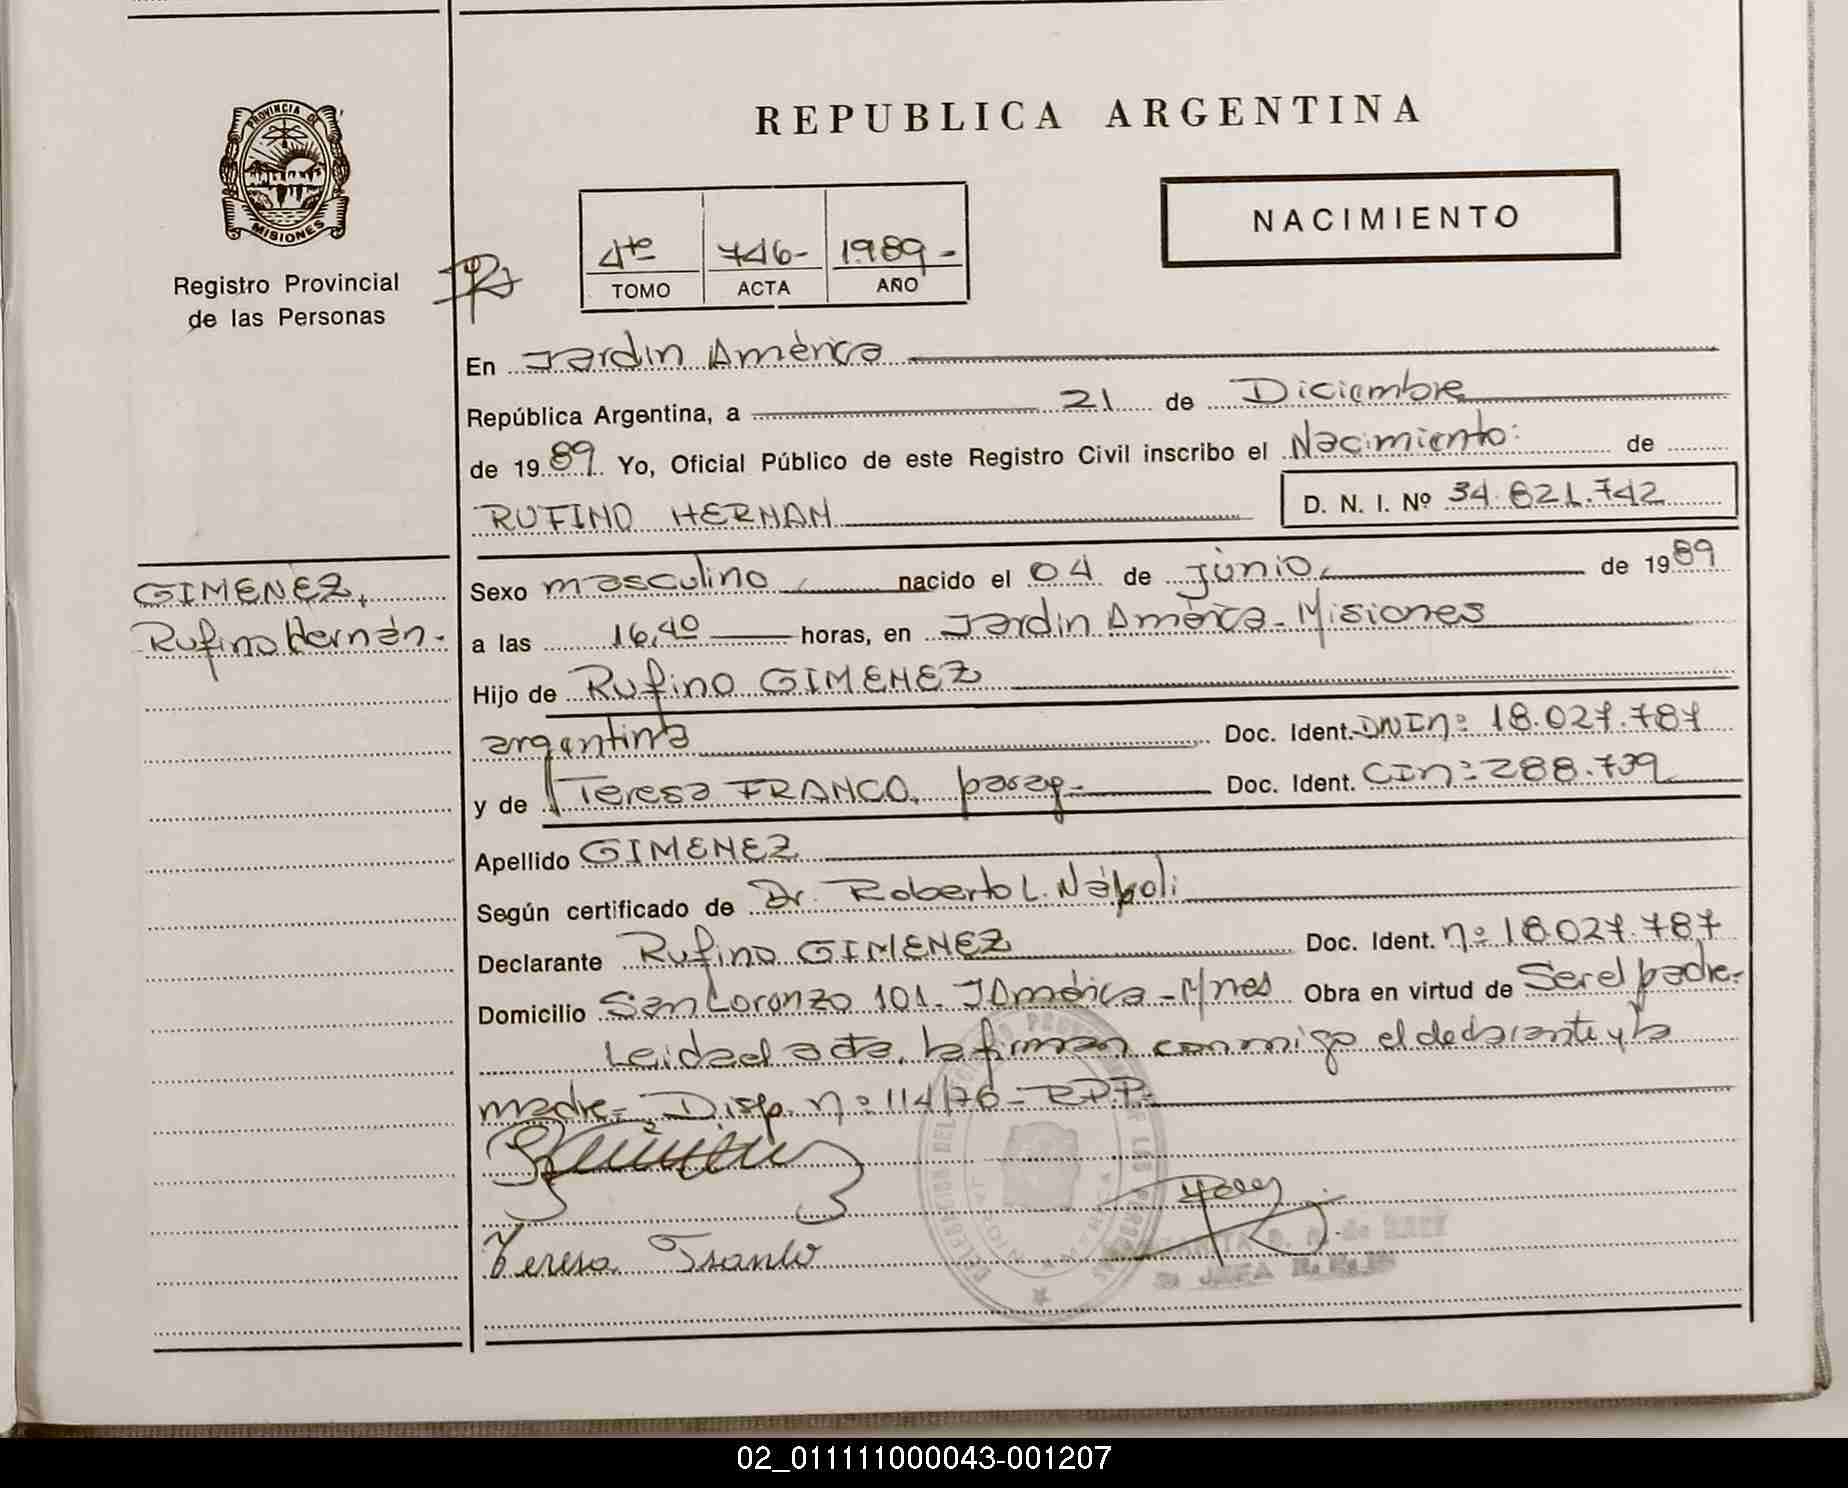 PROVINCIA DE
MISIONES
Registro Provincial
de las Personas
REPUBLICA ARGENTINA
NACIMIENTO
4to 746- 1989-
TOMO ACTA AÑO
En Jardin América
República Argentina, a 21 de Diciembre
de 1989 Yo, Oficial Público de este Registro Civil inscribo el Nacimiento: de
RUFINO HERNAN D. N. I. Nº 34.821.742
GIMENEZ,
Rufino Hernán.
Sexo masculino nacido el 04 de junio de 1989
a las 16,40 horas, en Jardin América - Misiones
Hijo de Rufino GIMENEZ
argentina Doc. Ident. DNI nº 18.027.787
y de Teresa FRANCO, parag- Doc. Ident. CI nº 288.739
Apellido GIMENEZ
Según certificado de Dr. Roberto L. Nápoli
Declarante Rufino GIMENEZ Doc. Ident. nº 18.027.787
Domicilio San Lorenzo 101. J América - Mnes Obra en virtud de Ser el padre-
Leida el acta, la firman conmigo el declarante y la
madre- Disp. nº 114/76 - R.P.P.-
Teresa Franco
02_011111000043-001207